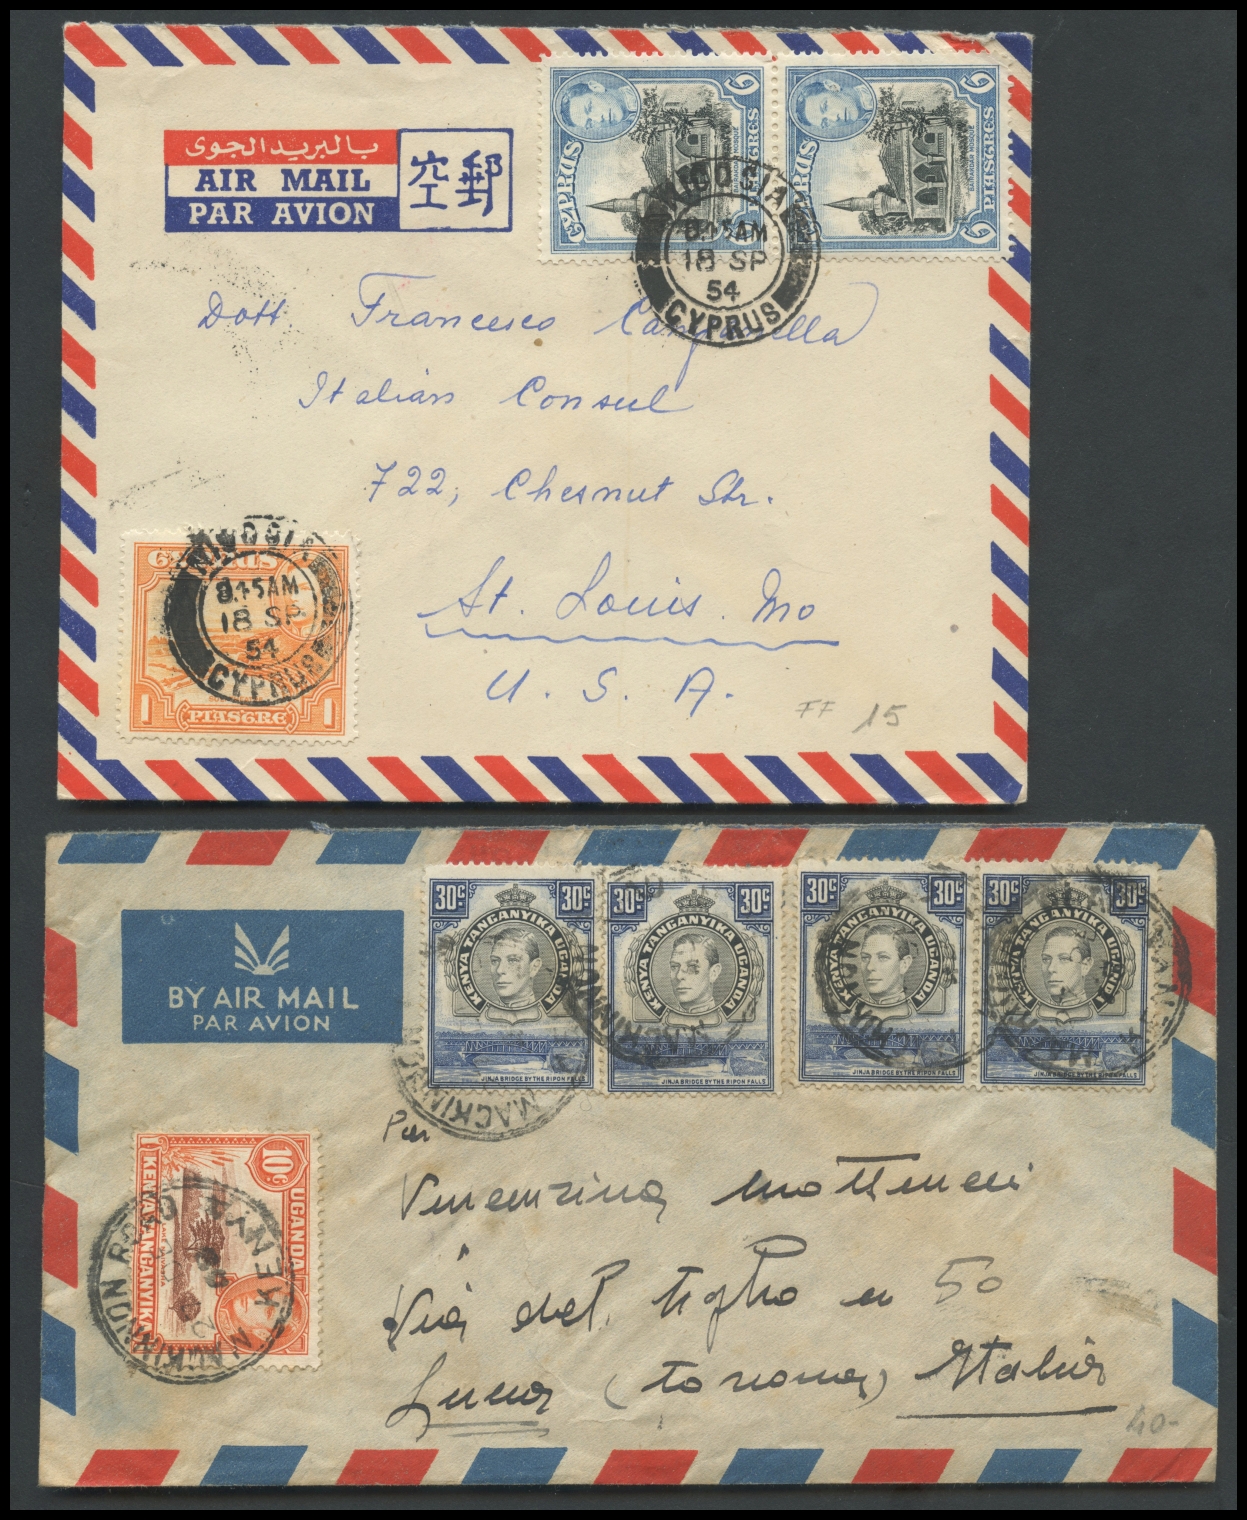 بالبريد الجوي
AIR MAIL
PAR AVION
空郵
CYPRUS
6
PIASTRES
6
BAIRAKDAR MOSQUE
CYPRUS
6
PIASTRES
6
BAIRAKDAR MOSQUE
NICOSIA
8.45AM
18 SP
54
CYPRUS
Dott Francesco Campanella
Italian Consul
722, Chesnut Str.
St. Louis. Mo
U. S. A.
FF 15
CYPRUS
1 PIASTRE 1
NICOSIA
8.45AM
18 SP
54
CYPRUS
BY AIR MAIL
PAR AVION
30c 30c
KENYA TANGANYIKA UGANDA
JINJA BRIDGE BY THE RIPON FALLS
30c 30c
KENYA TANGANYIKA UGANDA
JINJA BRIDGE BY THE RIPON FALLS
30c 30c
KENYA TANGANYIKA UGANDA
JINJA BRIDGE BY THE RIPON FALLS
30c 30c
KENYA TANGANYIKA UGANDA
JINJA BRIDGE BY THE RIPON FALLS
MACKINNON
10c
UGANDA
KENYA TANGANYIKA
LAKE VICTORIA
MACKINNON ROAD
KENYA
Per
Via del
n 50
Italia
40-